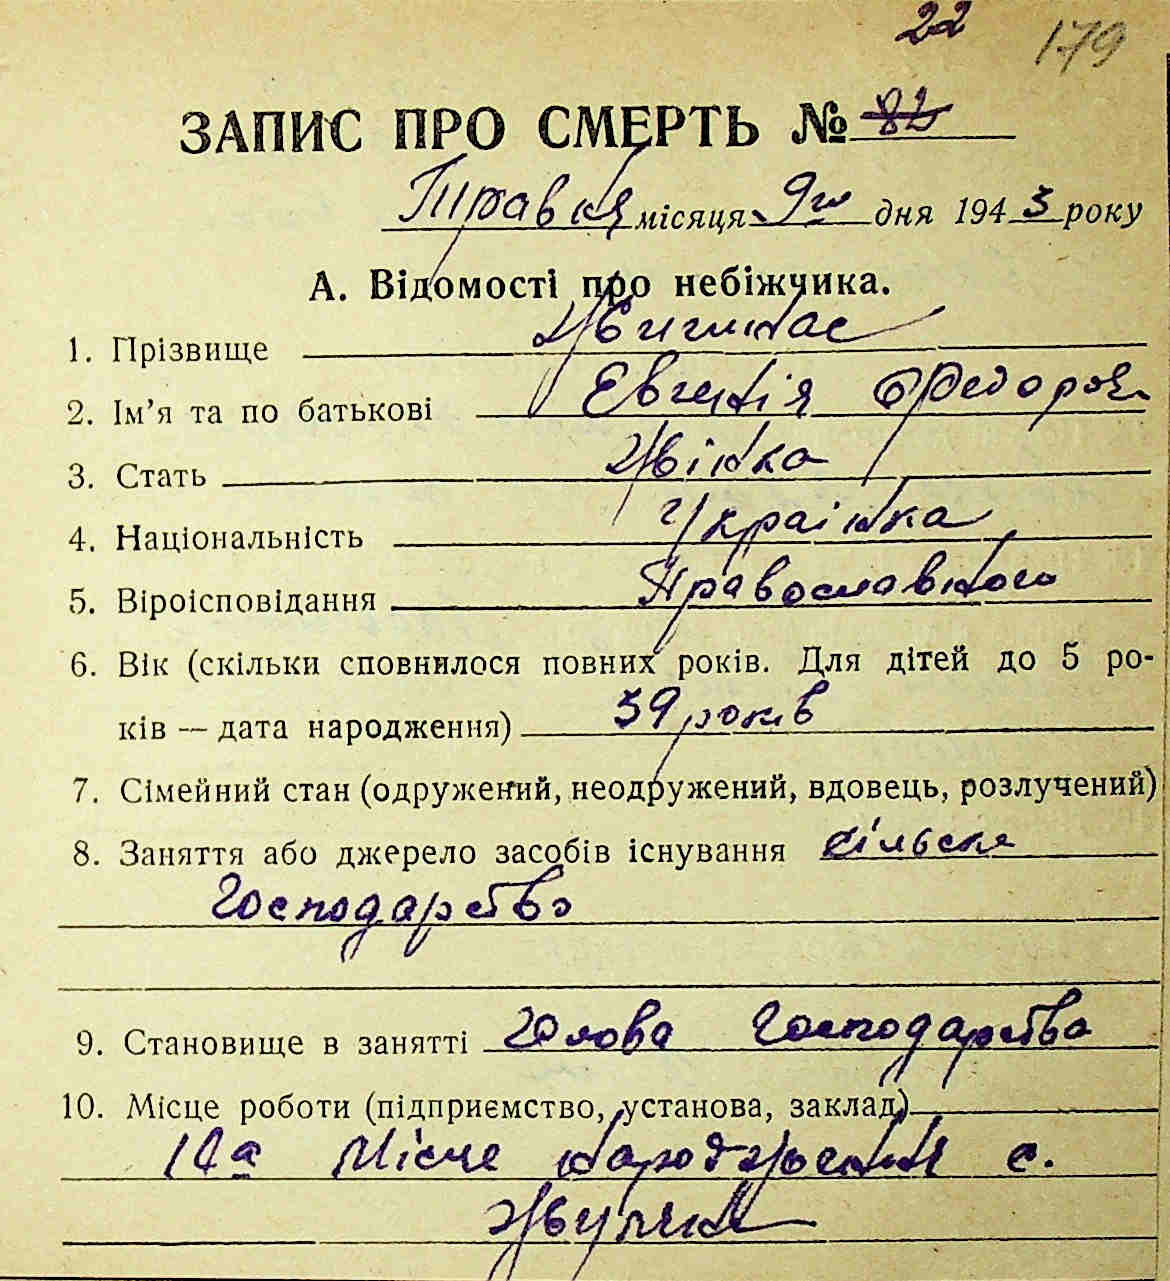 22 179
ЗАПИС ПРО СМЕРТЬ № 82
Травня місяця 9го дня 1943 року
А. Відомості про небіжчика.
1. Прізвище
2. Ім’я та по батькові Евгенія Федоров
3. Стать Жінка
4. Національність Украінка
5. Віроісповідання Православного
6. Вік (скільки сповнилося повних років. Для дітей до 5 ро-
ків — дата народження) 39 років
7. Сімейний стан (одружений, неодружений, вдовець, розлучений)
8. Заняття або джерело засобів існування сільске
Господарство
9. Становище в занятті Голова Господарства
10. Місце роботи (підприємство, установа, заклад)
На місце народження с.
Жуляни